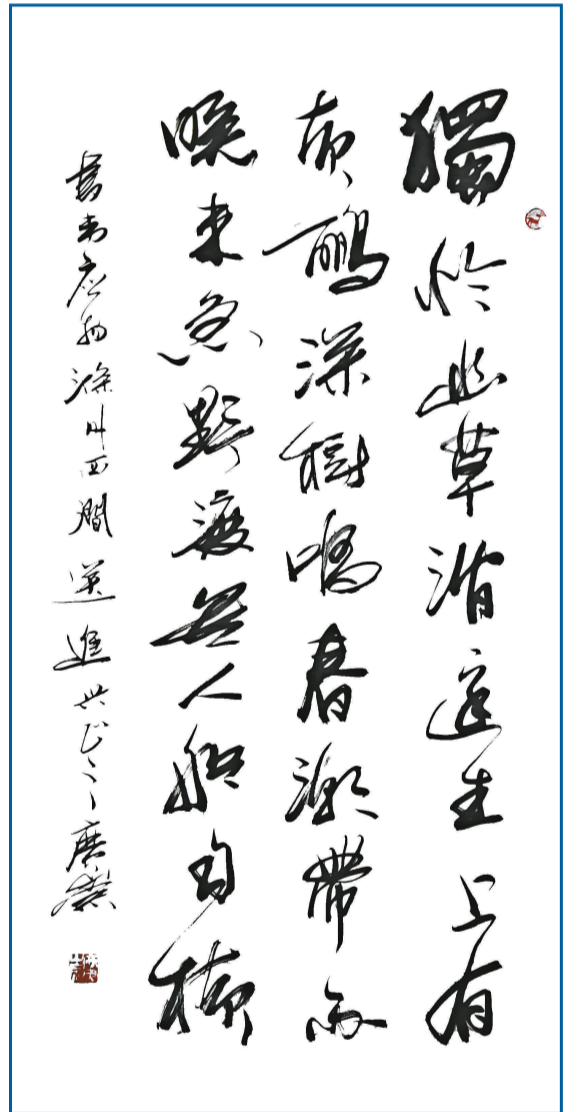 獨憐幽草澗邊生上有
黃鸝深樹鳴春潮帶雨
晚來急野渡無人船自橫
書韋應物滁州西澗